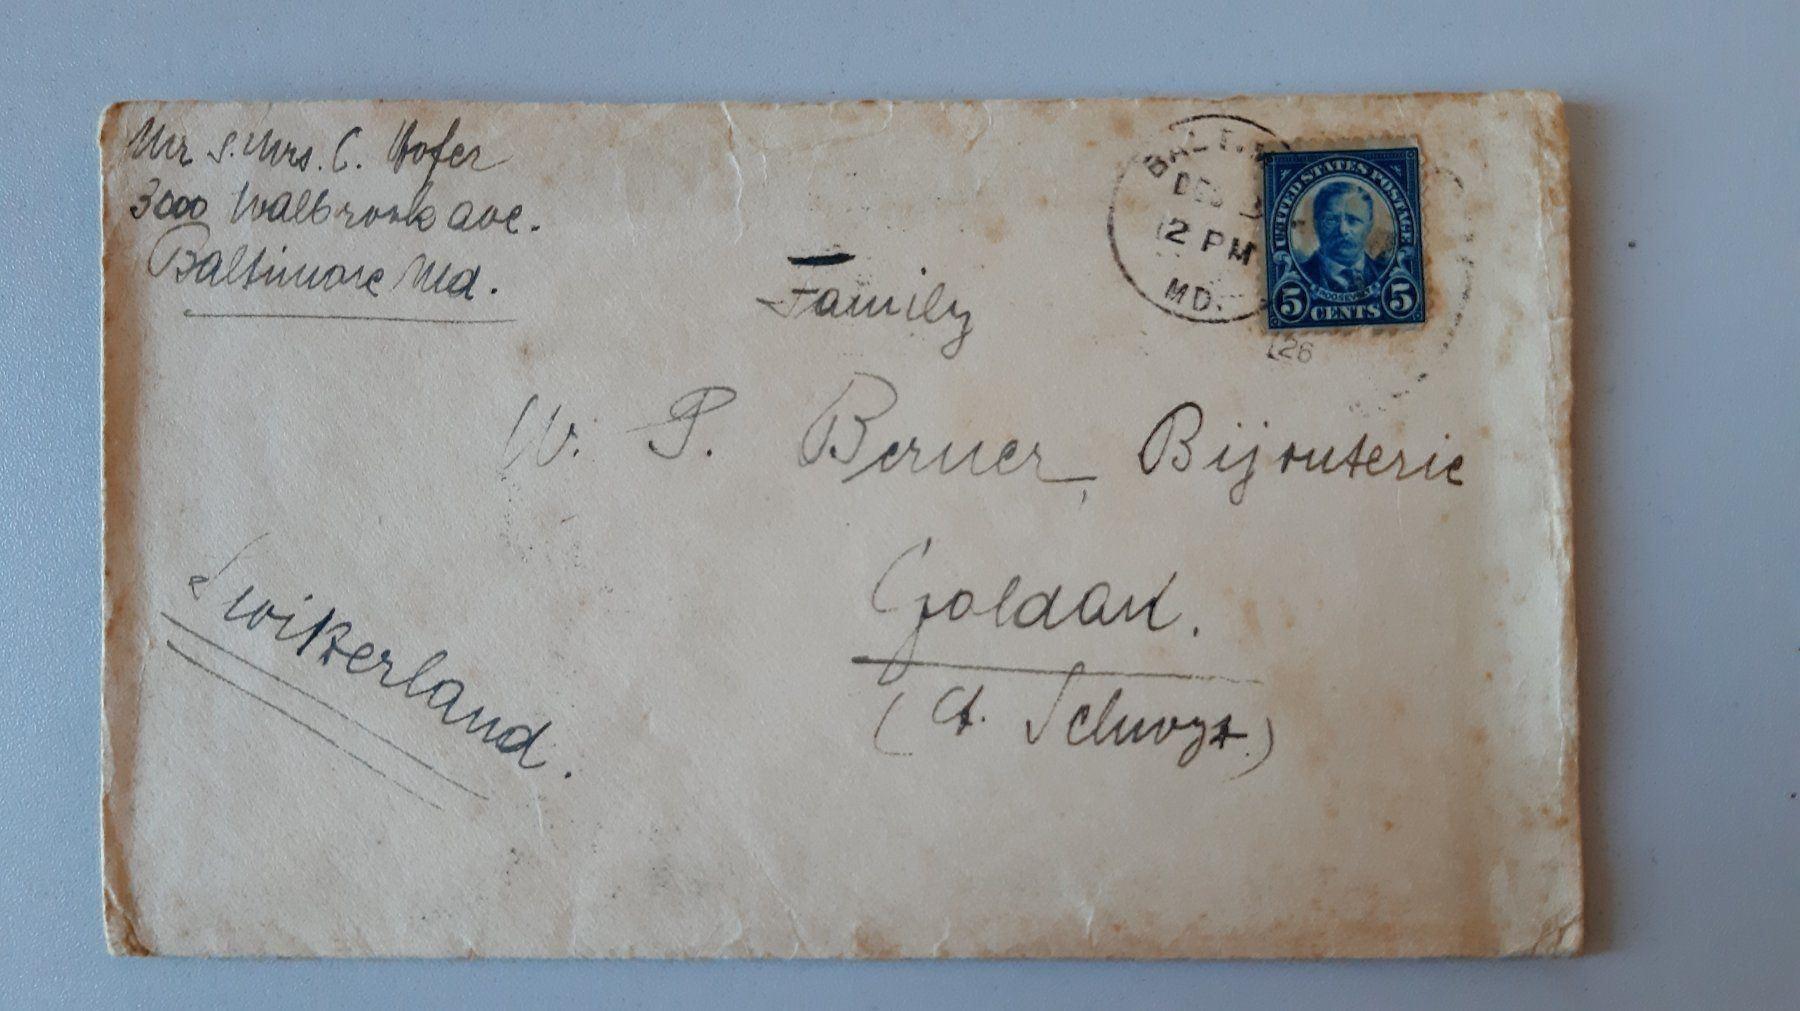 Mr & Mrs. C. Hofer
3000 Walbrook ave.
Baltimore Md.
BALT.
DEC 3
12 PM
MD.
UNITED STATES POSTAGE
ROOSEVELT
5 CENTS 5
Family
W. P. Berner, Bijouterie
Goldau.
(Ct. Schwyz.)
Switzerland.